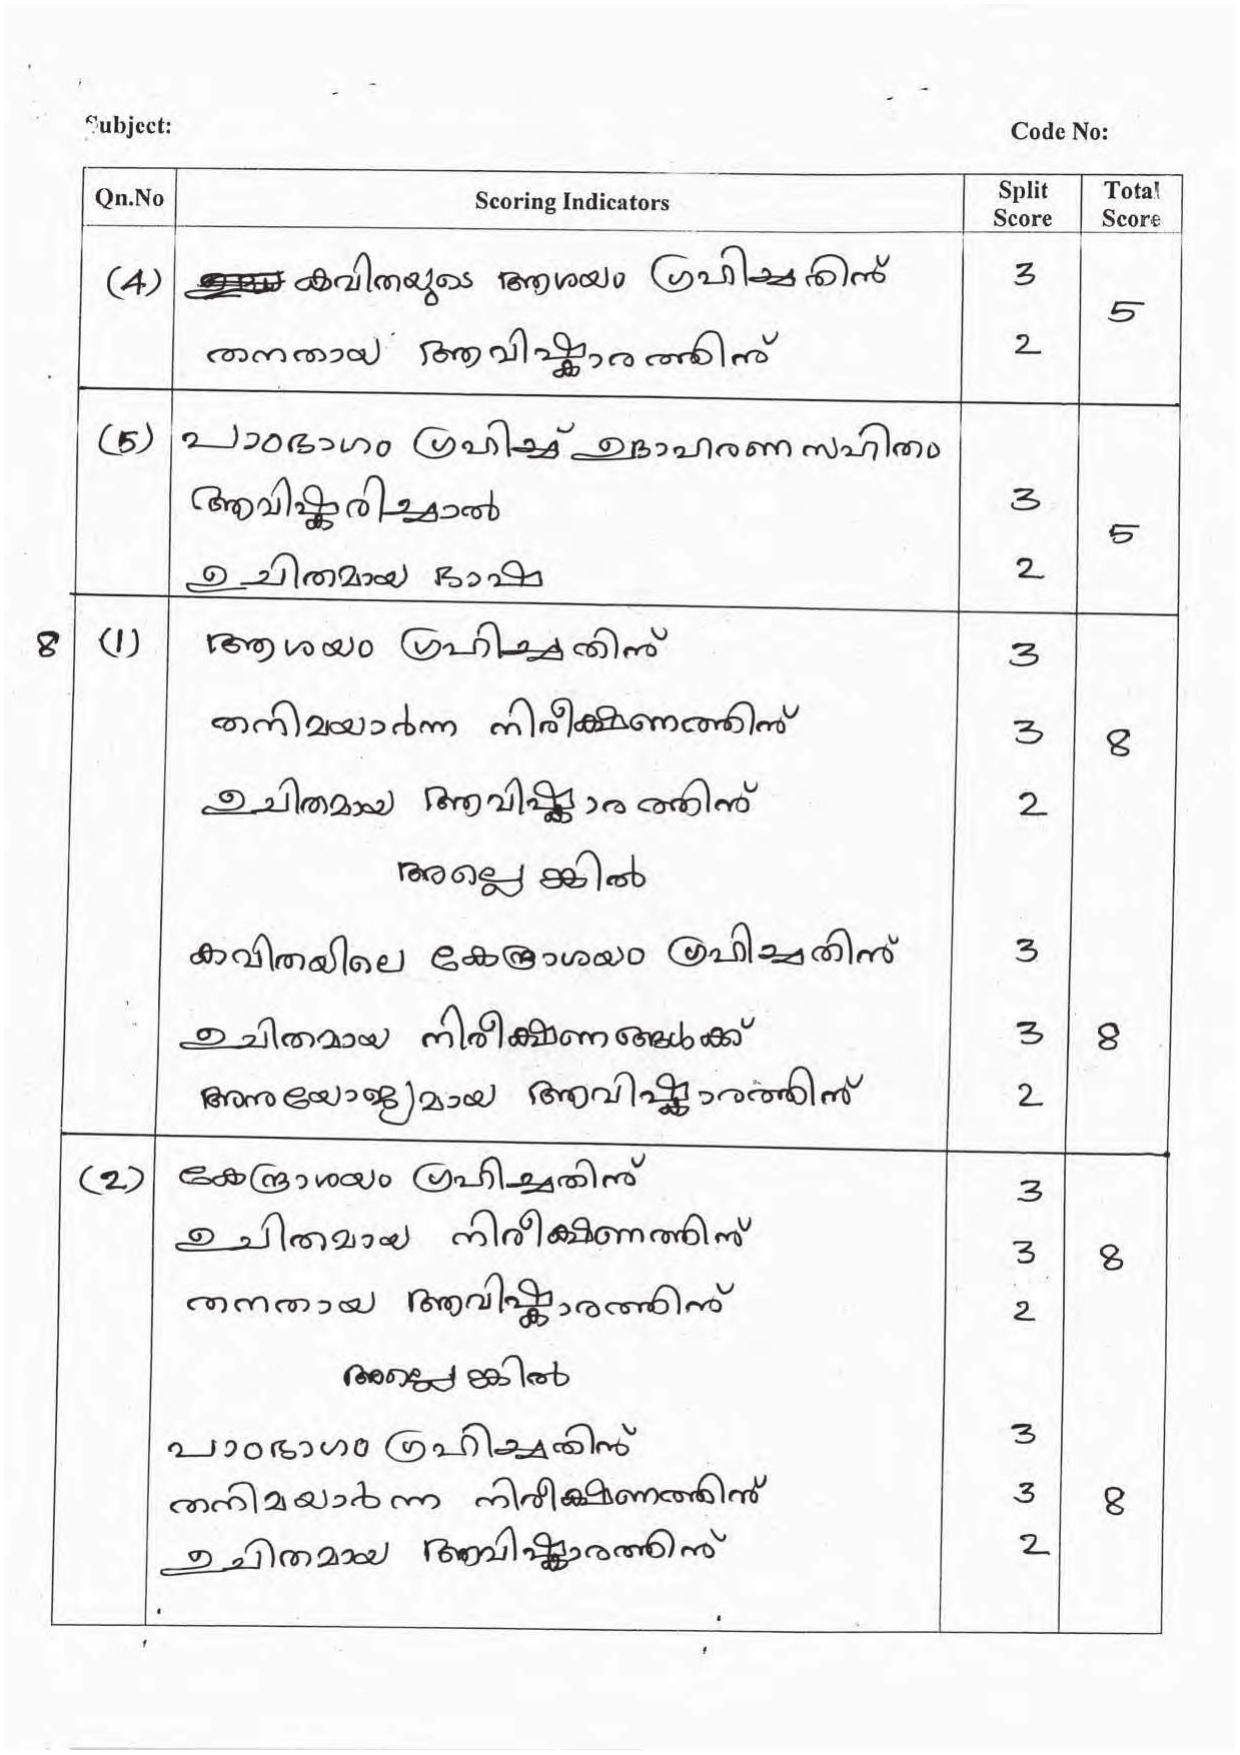 Subject: Code No:
Qn.No Scoring Indicators Split Score Total Score
(4) കവിതയുടെ ആശയം ഗ്രഹിച്ചതിന് 3
5
തനതായ ആവിഷ്കാരത്തിന് 2
(5) പാഠഭാഗം ഗ്രഹിച്ച് ഉദാഹരണസഹിതം
ആവിഷ്കരിച്ചാൽ 3
5
ഉചിതമായ ഭാഷ 2
8 (1) ആശയം ഗ്രഹിച്ചതിന് 3
തനിമയാർന്ന നിരീക്ഷണത്തിന് 3 8
ഉചിതമായ ആവിഷ്കാരത്തിന് 2
അല്ലെങ്കിൽ
കവിതയിലെ കേന്ദ്രാശയം ഗ്രഹിച്ചതിന് 3
ഉചിതമായ നിരീക്ഷണങ്ങൾക്ക് 3 8
അനുയോജ്യമായ ആവിഷ്കാരത്തിന് 2
(2) കേന്ദ്രാശയം ഗ്രഹിച്ചതിന് 3
ഉചിതമായ നിരീക്ഷണത്തിന് 3 8
തനതായ ആവിഷ്കാരത്തിന് 2
അല്ലെങ്കിൽ
പാഠഭാഗം ഗ്രഹിച്ചതിന് 3
തനിമയാർന്ന നിരീക്ഷണത്തിന് 3 8
ഉചിതമായ ആവിഷ്കാരത്തിന് 2